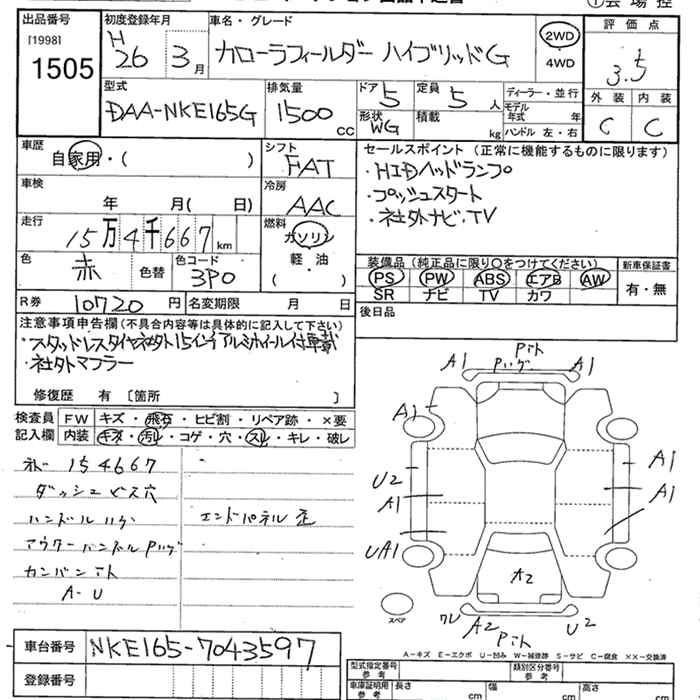 出品番号
[1998]
1505
初度登録年月
H
26 3月
車名・グレード
カローラフィールダー ハイブリッドG
2WD
4WD
評価点
3.5
外装 内装
C C
型式
DAA-NKE165G
排気量
1500
CC
ドア
5
定員
5人
形状
WG
積載
kg
ディーラー・並行
モデル
年式 年
ハンドル 左・右
車歴
自家用・( )
シフト
FAT
車検
年 月( 日)
冷房
AAC
走行
15万4千667km
燃料
ガソリン
軽・油
( )
色
赤
色替
色コード
3P0
R券 10720円
名変期限 月 日
セールスポイント (正常に機能するものに限ります)
・HIDヘッドランプ
・プッシュスタート
・社外ナビ、TV
装備品 (純正品に限り○をつけてください)
PS PW ABS エアB AW
SR ナビ TV カワ
新車保証書
有・無
後日品
注意事項申告欄 (不具合内容等は具体的に記入して下さい)
・スタッドレスタイヤ社外15インチアルミホイール付車載
・社外マフラー
修復歴 有 〔箇所 〕
検査員
記入欄
FW キズ・飛石・ヒビ割・リペア跡・×要
内装 キズ・汚レ・コゲ・穴・スレ・キレ・破レ
154667
ダッシュビス穴
ハンドルハゲ
アウターハンドルPハゲ
エンドパネル歪
A-U
A1
Pハゲ
A1
A1
U2
A1
UA1
A1
A1
A2
スペア
ワレ
A2
U2
A-キズ E-エクボ U-凹み W-補修跡 S-サビ C-腐食 ××-交換済
車台番号
NKE165-7043597
登録番号
型式指定番号
参考
類別区分番号
参考
車庫証明用
参考
長さ
cm
幅
cm
高さ
cm